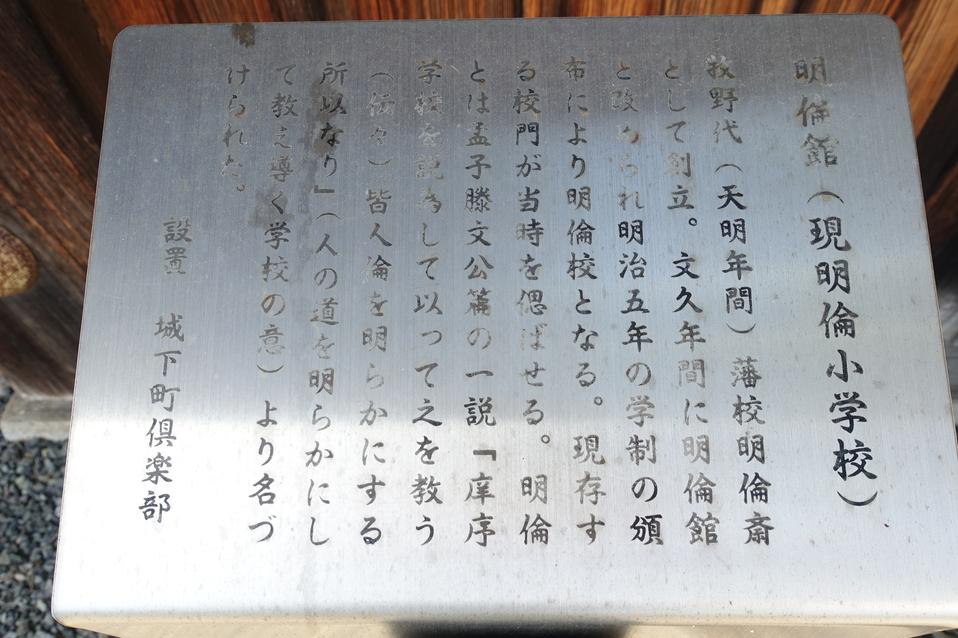 明倫館（現明倫小学校）
牧野代（天明年間）藩校明倫斎
として創立。文久年間に明倫館
と改められ明治五年の学制の頒
布により明倫校となる。現存す
る校門が当時を偲ばせる。明倫
とは孟子滕文公篇の一説「庠序
学校を説為して以って之を教う
（云々）皆人倫を明らかにする
所以なり」（人の道を明らかにし
て教え導く学校の意）より名づ
けられた。
設置　城下町倶楽部